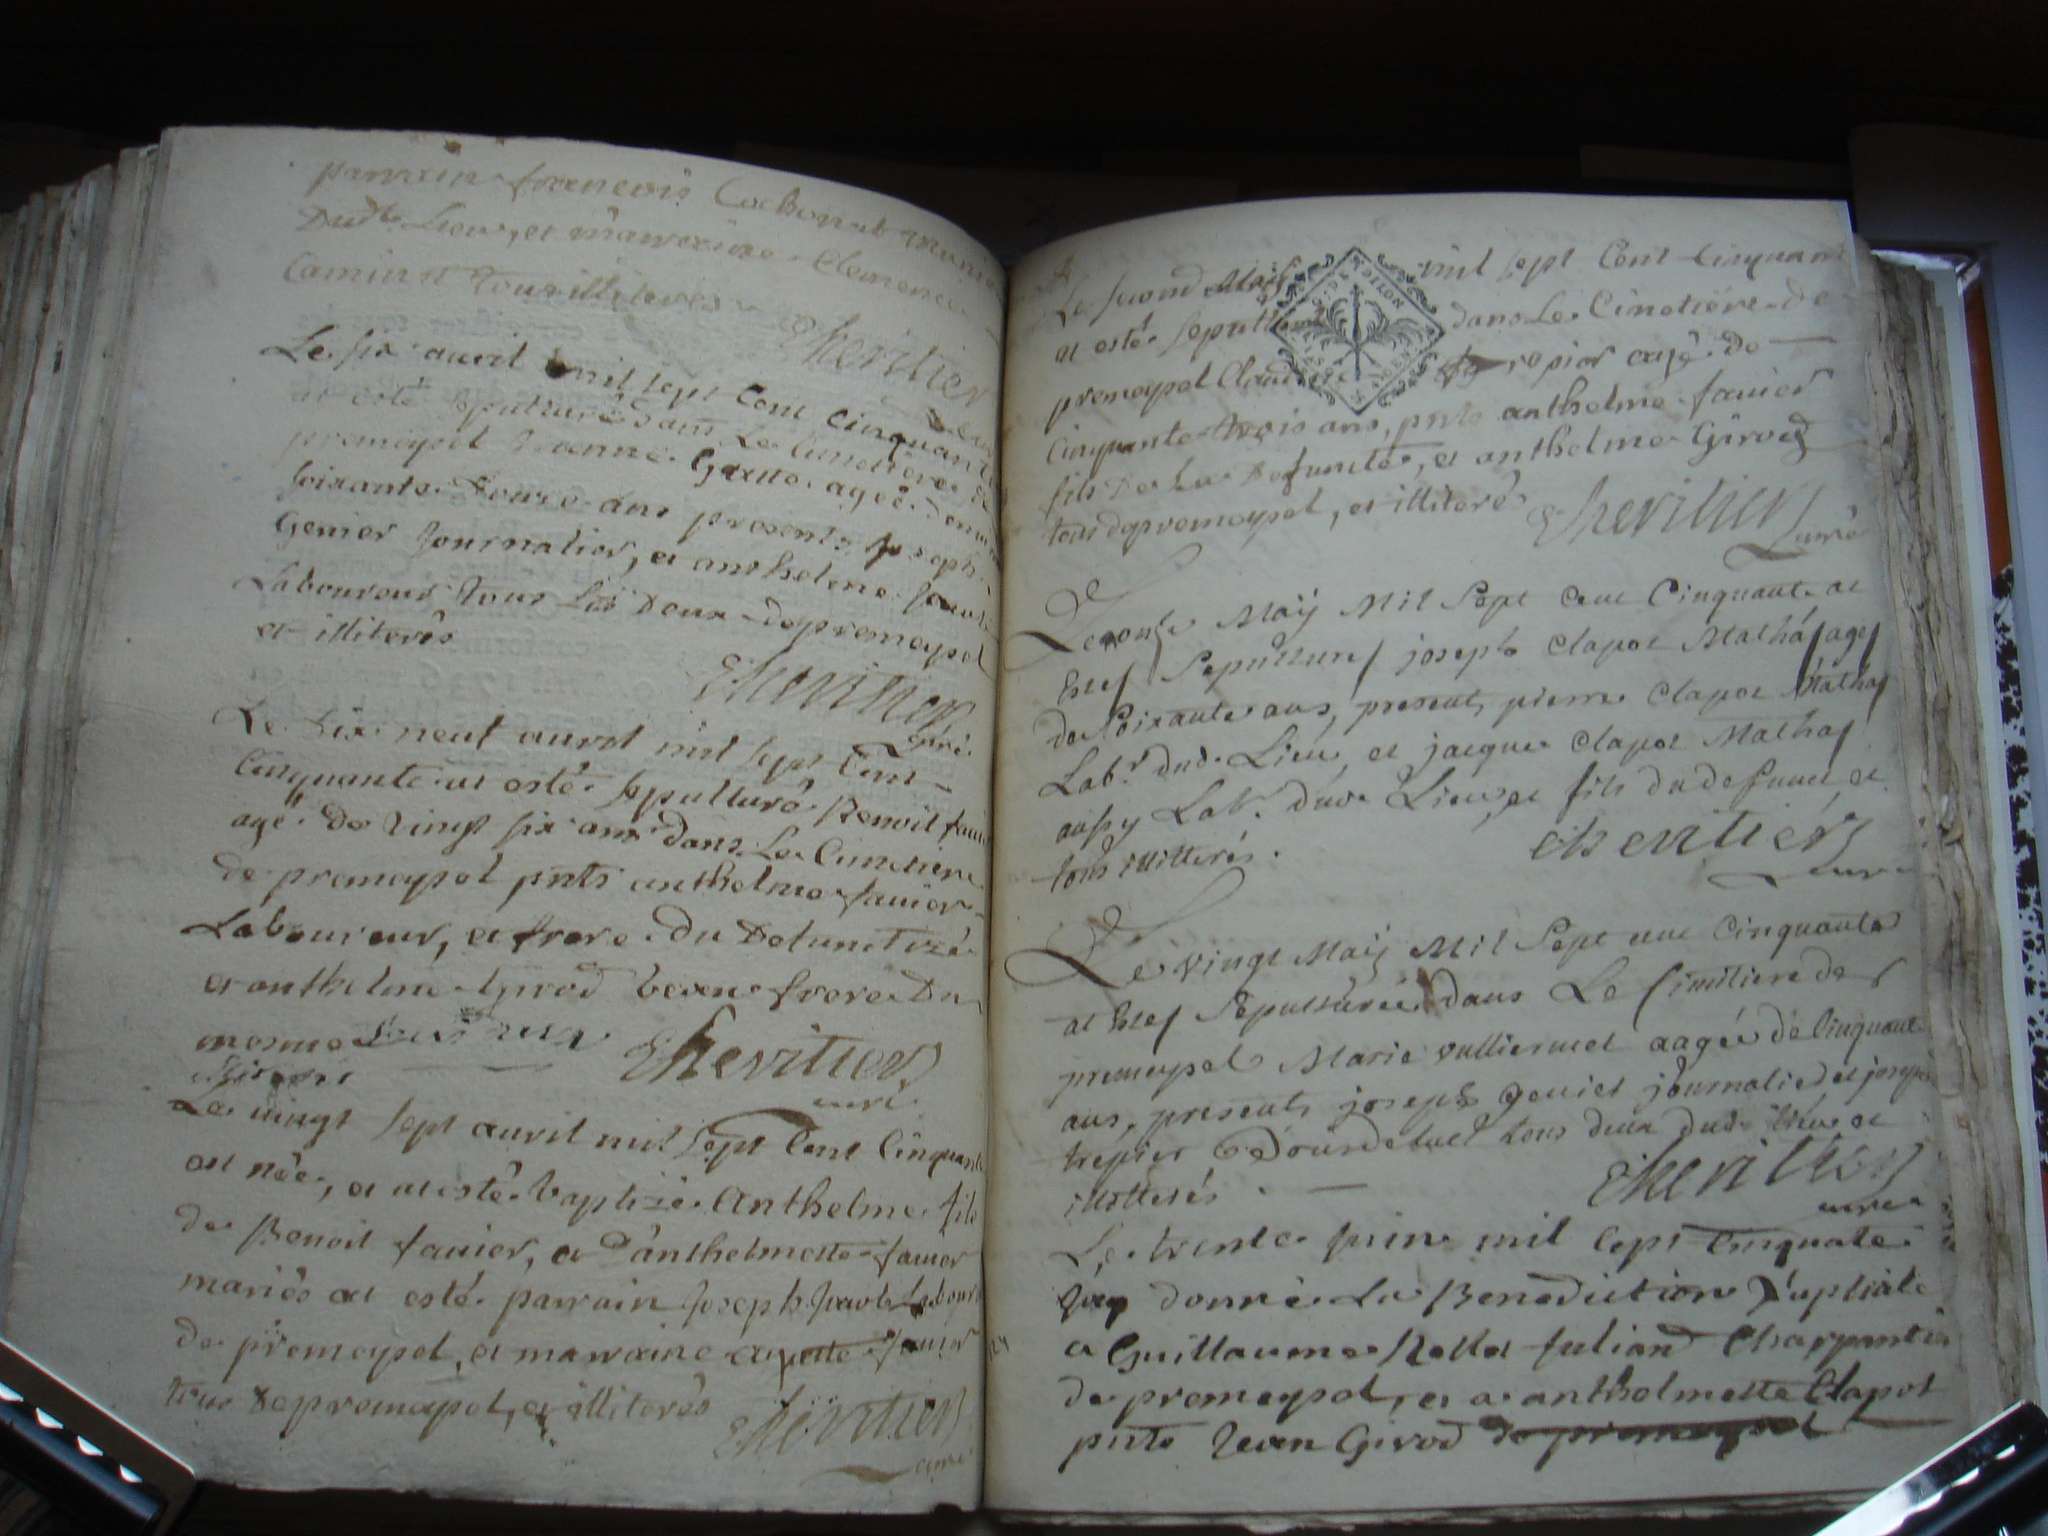 parrain francois
Dudt Lieu, et marraine Clemence
Camin et tous illiteres
Lheritier
Le six auril mil sept Cent Cinquante
at esté sepulturé dans Le Cimetiere de
premeysel Jeanne agée denuiron
soixante Douze ans presents joseph
Genier Journalier, et anthelme
Laboureur tous Les Deux de premeysel
et illiterés
Lheritier
curé
Le Dix neuf auril mil sept Cent
Cinquante at esté sepulturé Benoit fauier
agé de vingt six ans Dans Le Cimetiere
de premeysel pnts anthelme fauier
Laboureur, et frere du
et anthelme girod beau frere Du
mesme
Lheritier
curé
Le vingt sept auril mil sept Cent Cinquante
est née, et at esté baptizé Anthelme fils
de Benoit fauier, et D'anthelmette fauier
mariés at esté parrain Joseph
de premeysel, et marraine fauier
tous De premeysel, et illiterés
Lheritier
curé
Le second May mil sept Cent Cinquante
at esté sepulturé dans Le Cimetiére de
premeysel agé de
Cinquante trois ans, pnts anthelme fauier
fils De La Defuncte, et anthelme Girod
tous de premeysel, et illiteré
Lheritier
curé
Le onze Maÿ Mil Sept Cent Cinquante at
Estef Sepulturef joseph Clapot Mathaf agef
de Soixante ans, present, pierre Clapot Mathaf
Labr. dud. Lieu, et jacque Clapot Mathaf
aussy Labr. dud. Lieu, et fils du defunct, et
tous illitterés.
Lheritier
curé
Le vingt Maÿ Mil Sept cent Cinquante
at Estef Sepulturée dans Le Cimitiere de
premeysel Marie vulliermet aagée de Cinquante
ans, presents joseph genier journalier et joseph
trepier tous deux dud. Lieu et
illitterés.
Lheritier
curé
Le trente juin mil sept Cinquate
jay donné La Benediction Nuptiale
a Guillaume Charpantier
de premeysel, et a anthelmette Clapot
pnts Jean Girod de premeysel